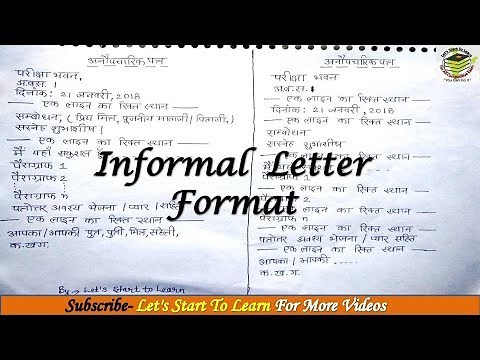 अनौपचारिक पत्र
परीक्षा भवन,
अ.ब.स.।
दिनांक: 21 जनवरी, 2018
— एक लाइन का रिक्त स्थान —
सम्बोधन, ( प्रिय मित्र, पूजनीय माताजी / पिताजी,)
सस्नेह शुभाशीष।
— एक लाइन का रिक्त स्थान —
मैं यहाँ सकुशल
पैराग्राफ 1
पैराग्राफ 2
पैराग्राफ n
पत्रोत्तर अवश्य भेजना / प्यार सहित
— एक लाइन का रिक्त स्थान —
आपका/आपकी पुत्र, पुत्री, मित्र, सहेली,
क.ख.ग.
By → Let's Start to Learn
अनौपचारिक पत्र
परीक्षा भवन
अ.ब.स.
— एक लाइन का रिक्त स्थान —
दिनांक: 21 जनवरी, 2018
— एक लाइन का रिक्त स्थान —
सम्बोधन
सस्नेह शुभाशीष
— एक लाइन का रिक्त स्थान —
पैराग्राफ 1
— एक लाइन का रिक्त स्थान —
पैराग्राफ 2
— एक लाइन का रिक्त स्थान —
पैराग्राफ n
— एक लाइन का रिक्त स्थान —
पत्रोत्तर अवश्य भेजना / प्यार सहित
— एक लाइन का रिक्त स्थान —
आपका / आपकी .....
क.ख.ग.
Informal Letter
Format
Subscribe- Let's Start To Learn For More Videos